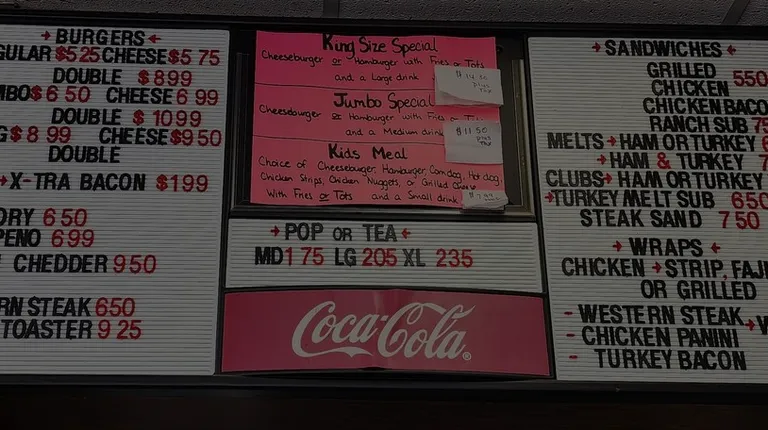 →BURGERS←
GULAR $5 25 CHEESE $5 75
DOUBLE $8 99
MBO$6 50 CHEESE 6 99
DOUBLE $10 99
G$8 99 CHEESE $9 50
DOUBLE
→X-TRA BACON $1 99
ORY 6 50
PENO 6 99
CHEDDER 9 50
RN STEAK 6 50
TOASTER 9 25
King Size Special
Cheeseburger or Hamburger with Fries or Tots
and a Large drink
plus tax
Jumbo Special
Cheeseburger or Hamburger with Fries or Tots
and a Medium drink
$11.50
plus tax
Kids Meal
Choice of Cheeseburger, Hamburger, Corn dog, Hot dog,
Chicken Strips, Chicken Nuggets, or Grilled Cheese
With Fries or Tots and a Small drink
→POP OR TEA←
MD 1 75 LG 2 05 XL 2 35
Coca-Cola®
→SANDWICHES←
GRILLED
CHICKEN 5 50
CHICKEN BACO
RANCH SUB 7
MELTS→HAM OR TURKEY
→HAM & TURKEY
CLUBS→HAM OR TURKEY
→TURKEY MELT SUB 6 50
STEAK SAND 7 50
→WRAPS←
CHICKEN→STRIP, FAJI
OR GRILLED
-WESTERN STEAK→
-CHICKEN PANINI
-TURKEY BACON